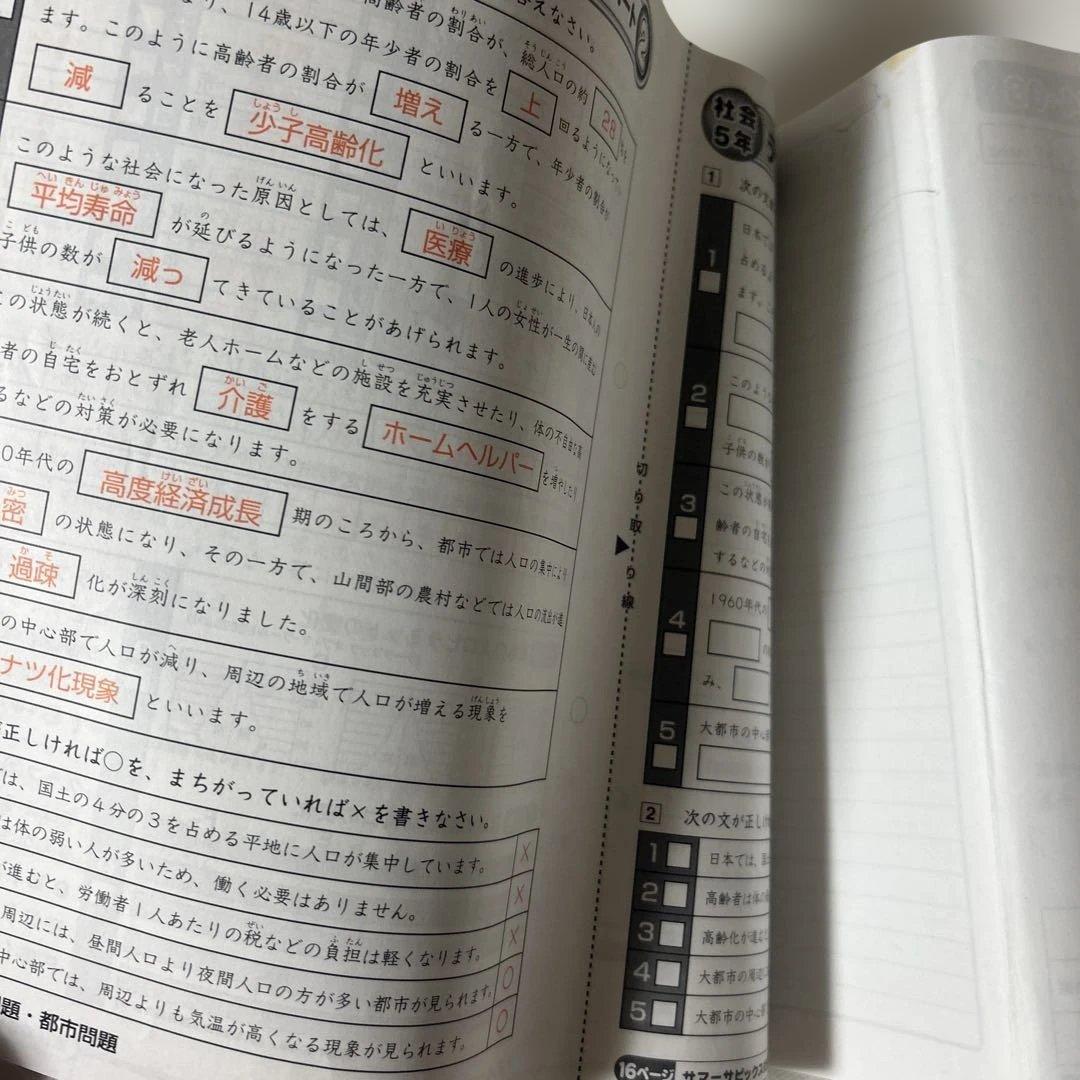 答えなさい。
高齢者の割合が、総人口の約 28 %を
なり、14歳以下の年少者の割合を 上 回るようになって
ます。このように高齢者の割合が 増え る一方で、年少者の割合が
減 ることを 少子高齢化 といいます。
このような社会になった原因としては、 医療 の進歩により、日本人の
平均寿命 が延びるようになった一方で、1人の女性が一生の間に産む
子供の数が 減っ てきていることがあげられます。
この状態が続くと、老人ホームなどの施設を充実させたり、体の不自由な高
者の自宅をおとずれ 介護 をする ホームヘルパー を増やしたり
るなどの対策が必要になります。
0年代の 高度経済成長 期のころから、都市では人口の集中により
密 の状態になり、その一方で、山間部の農村などでは人口の流出が進
過疎 化が深刻になりました。
の中心部で人口が減り、周辺の地域で人口が増える現象を
ナツ化現象 といいます。
正しければ○を、まちがっていれば×を書きなさい。
は、国土の4分の3を占める平地に人口が集中しています。 ×
は体の弱い人が多いため、働く必要はありません。 ×
が進むと、労働者1人あたりの税などの負担は軽くなります。 ×
周辺には、昼間人口より夜間人口の方が多い都市が見られます。 ○
中心部では、周辺よりも気温が高くなる現象が見られます。 ○
題・都市問題
切り取り線
社会
5年
1 次の文
1 日本で
占める
ます。こ
2 このような
子供の数が
3 この状態が
齢者の自宅
するなどの
4 1960年代の
の
み、
5 大都市の中心
2 次の文が正しけ
1 日本では、国
2 高齢者は体の
3 高齢化が進む
4 大都市の周辺
5 大都市の中心
16ページ サマーサピックス